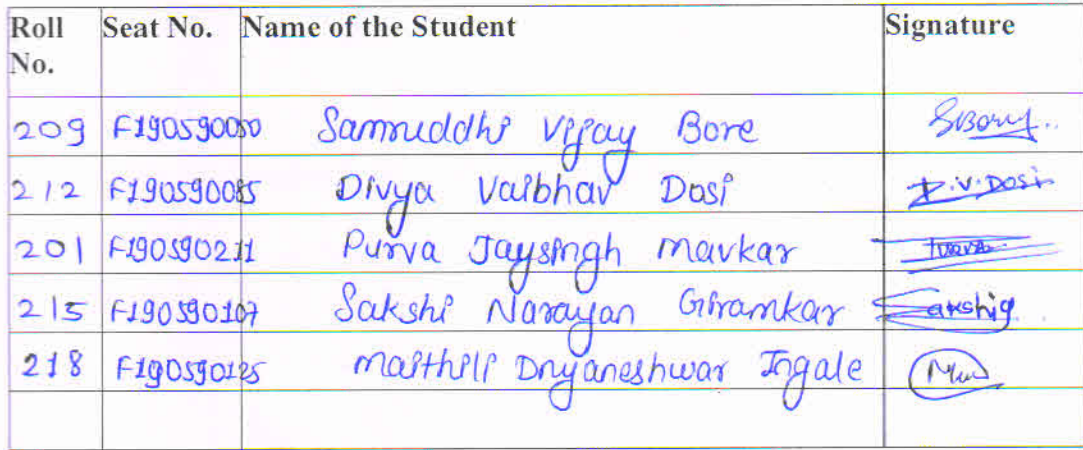 Roll No. Seat No. Name of the Student Signature
209 F190590050 Samruddhi Vijay Bore SBore
212 F190590085 Divya Vaibhav Dosi D.V.Dosi
201 F190590211 Purva Jaysingh Mavkar Purva
215 F190590107 Sakshi Narayan Giramkar Sakshig
218 F190590125 Maithili Dnyaneshwar Ingale